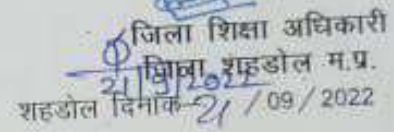 जिला शिक्षा अधिकारी
जिला शहडोल म.प्र.
21/9/2022
शहडोल दिनांक 21/09/2022